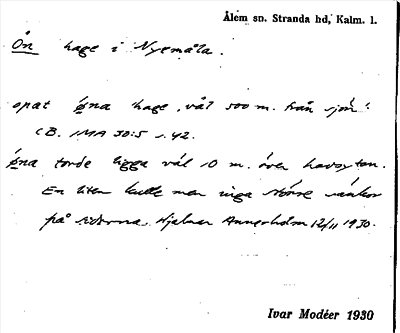 Ålem sn. Stranda hd, Kalm. l.
Ön hage i Nyemåla.
opat øna hage, väl 500 m. från sjön.
CB. IMA 30:5 s. 42.
øna torde ligga väl 10 m. över havsytan.
En liten kulle men inga större sänkor
på sidorna. Hjalmar Annerholm 12/11 1930.
Ivar Modéer 1930